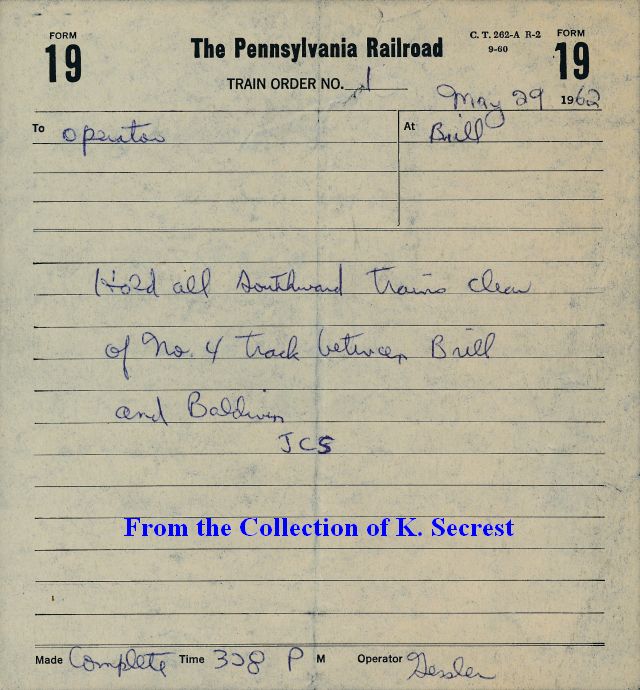 FORM 19
The Pennsylvania Railroad
C. T. 262-A R-2
9-60
FORM 19
TRAIN ORDER NO. 1
May 29 1962
To operator
At Brill
Hold all Southward trains clear
of No. 4 track between Brill
and Baldwin
JCS
From the Collection of K. Secrest
Made Complete Time 328 P M Operator Gessler